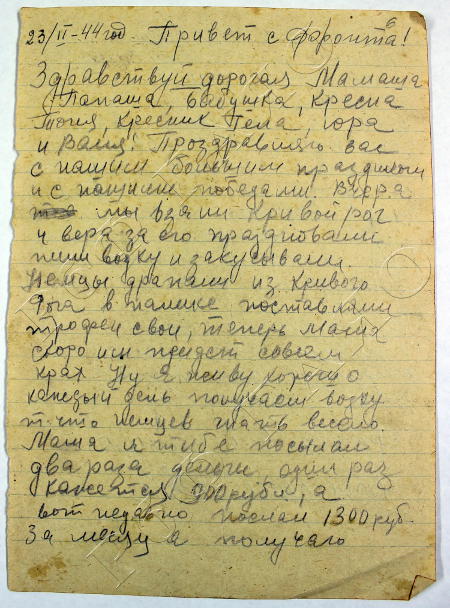 23/II-44 год. Привет с Фронта!
Здравствуй дорогая Мамаша
Папаша, Бабушка, Кресна
Тоня, Кресник Гела, Юра
и Валя. Проздравляю вас
с нашим большим праздником
и с нашими победами. Вчера
мы взяли Кривой рог
и вера за его праздновали
пили водку и закусывали.
Немцы драпали из Кривого
Рога в панике поставляли
трофеи свои, теперь Маша
скоро им придет совсем
крах Ну я живу хорошо
каждый день получаем водку
т. что немцев гнать весело.
Маша я тибе посылал
два раза деньги один раз
кажется 900 рубл, а
вот недавно послал 1300 руб.
За месяц я получаю